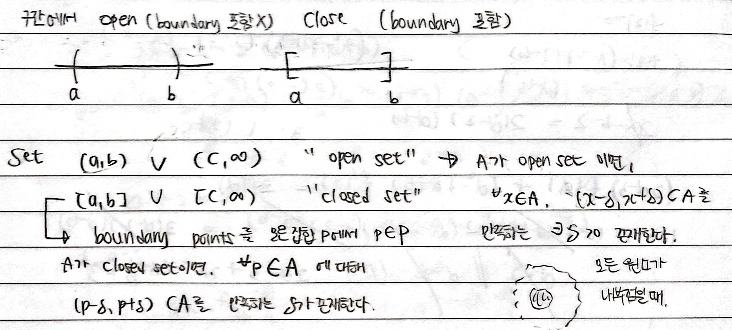 구간에서 open (boundary 포함X) close (boundary 포함)
a b a b
Set (a,b) ∪ (c,∞) "open set" → A가 open set 이면,
[a,b] ∪ [c,∞) "closed set" ∀x∈A, (x-δ, x+δ)⊂A를
↳ boundary points를 모은집합 P에서 p∈P 만족하는 ∃δ>0 존재한다.
A가 closed set이면, ∀p∈A 에 대해 모든 원소가
(p-δ, p+δ) ⊂A를 만족하는 δ가 존재한다. 내부점일 때.